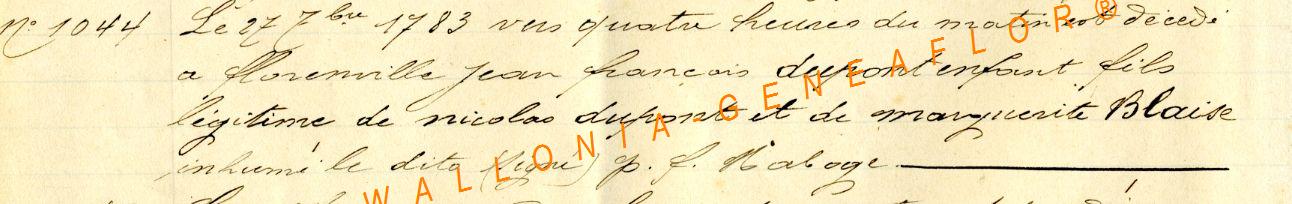 N° 1044 Le 27 7bre 1783 vers quatre heures du matin est décédé
a florenville jean francois dupont enfant fils
légitime de nicolas dupont et de marguerite Blaise
inhumé le dito (signé) p. f.
WALLONIA-GENEAFLOR®